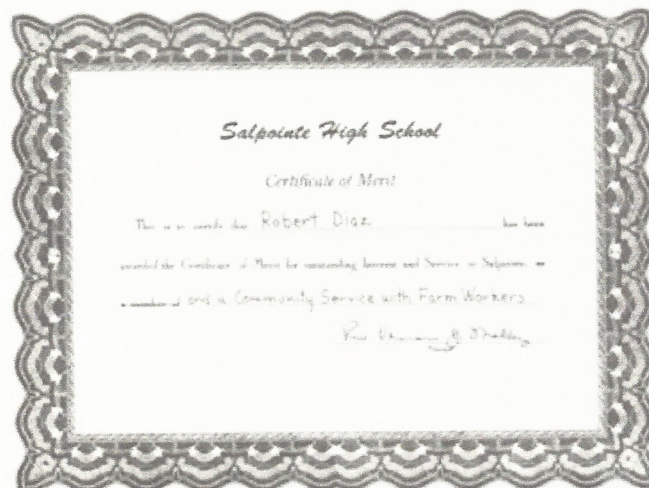 Salpointe High School
Certificate of Merit
This is to certify that Robert Diaz has been
awarded the Certificate of Merit for outstanding Interest and Service to Salpointe, as
a member of and a Community Service with Farm Workers